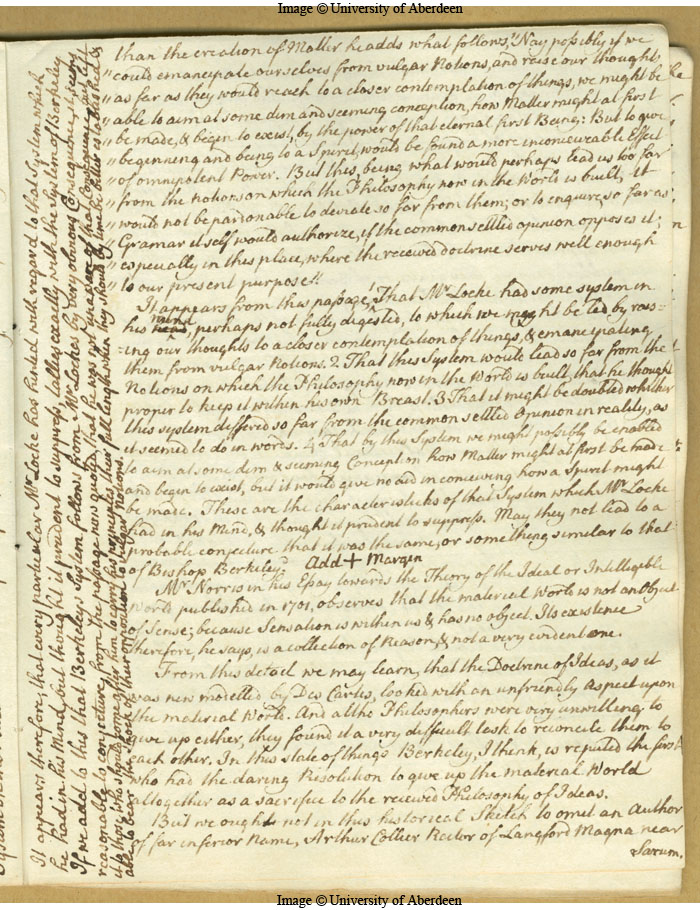 Image © University of Aberdeen
than the creation of Matter he adds what follows, "Nay possibly if we
" could emancipate ourselves from vulgar Notions, and raise our thoughts
" as far as they would reach to a closer contemplation of things, we might be
" able to aim at some dim and seeming conception, how Matter might at first
" be made, & begin to exist, by the power of that eternal first Being: But to give
" beginning and being to a Spirit, would be found a more inconceivable Effect
" of omnipotent Power. But this, being what would perhaps lead us too far
" from the Notions on which the Philosophy now in the World is built, it
" would not be pardonable to deviate so far from them; or to enquire, so far as
" Gramar it self would authorize, if the common settled opinion opposes it;
" especially in this place, where the received doctrine serves well enough
" to our present purpose"
It appears from this passage 1 That Mr Locke had some system in
his mind, perhaps not fully digested, to which we might be led by rais=
=ing our thoughts to a closer contemplation of things, & emancipating
them from vulgar Notions. 2 That this System would lead so far from the
Notions on which the Philosophy now in the World is built, that he thought
proper to keep it within his own Breast. 3 That it might be doubted whether
this system differed so far from the common settled Opinion in reality, as
it seemed to do in words. 4 That by this System we might possibly be enabled
to aim at some dim & seeming Conception how Matter might at first be made
and begin to exist, but it would give no aid in conceiving how a Spirit might
be made. These are the characteristicks of that System which Mr Locke
had in his Mind, & thought it prudent to suppress. May they not lead to a
probable conjecture that it was the same, or something similar to that
of Bishop Berkeley? Add + Margin
Mr Norris in his Essay towards the Theory of the Ideal or Intelligible
World published in 1701, observes that the material World is not an Object
of Sense; because Sensation is within us & has no object. Its existence
therefore, he says, is a collection of Reason, & not a very evident one.
From this detail we may learn, that the Doctrine of Ideas, as it
was new modelled by Des Cartes, looked with an unfriendly Aspect upon
the material World. And altho Philosophers were very unwilling to
give up either, they found it a very difficult task to reconcile them to
each other. In this state of things Berkeley, I think, is reputed the first
who had the daring Resolution to give up the material World
altogether as a sacrifice to the received Philosophy of Ideas.
But we ought not in this historical Sketch to omit an Author
of far inferior Name, Arthur Collier Rector of Langford Magna near
Sarum.
It appears therefore, that every particular Mr Locke has hinted with regard to that System which
he had in his Mind, but thought it prudent to suppress, tallies exactly with the System of Berkeley.
If we add to this that Berkeley's System follows from Mr Lockes by very obvious Consequence, it seems
reasonable to conjecture, from the passage now quoted, that he was not unaware of that Consequence, but left
it to those who should come after him to carry his principles their full length, when they should
able to bear the shock of their opposition to vulgar Notions.
Image © University of Aberdeen